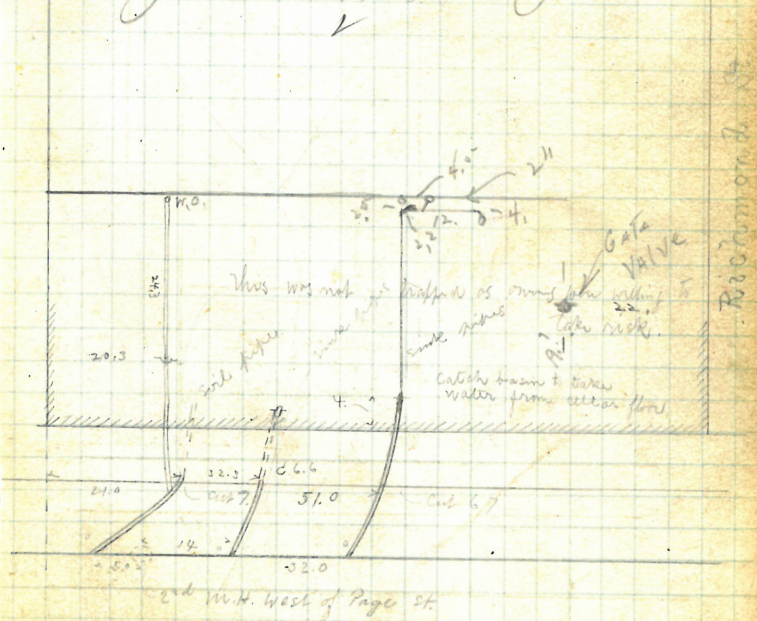 4.5
2"
W.O.
2.5
12.
4.
2.2
GATE
VALVE
Richmond St
243
This was not trapped as owners were willing to
take risk.
22.
20.3
soil pipe
sink pipes
catch basin to take
water from cellar floor
4.
32.3
C 6.6
21.0
Cut 7.
51.0
Cut 6.7
14
32.0
2nd M.H. West of Page St.